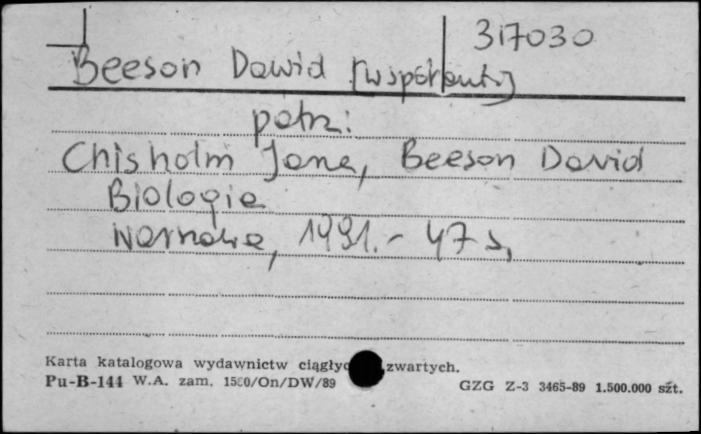 317030
Beeson David [współaut.]
patrz:
Chisholm Jane, Beeson David
Biologia
Warszawa, 1991.- 47 s,
Karta katalogowa wydawnictw ciągłyc zwartych.
Pu-B-144 W.A. zam. 1560/On/DW/89
GZG Z-3 3465-89 1.500.000 szt.